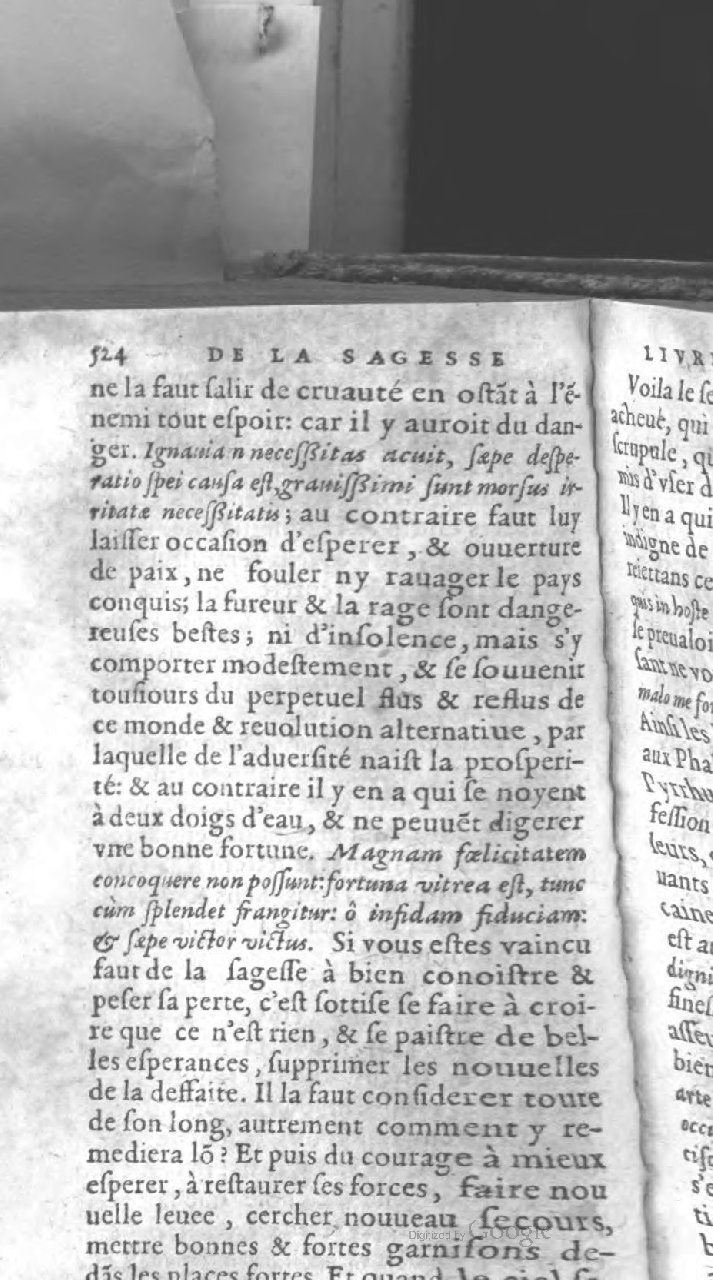 524 DE LA SAGESSE
ne la faut ſalir de cruauté en oſtãt à l'é-
nemi tout eſpoir: car il y auroit du dan-
ger. Ignauia n neceſſitas acuit, ſæpe deſpe-
ratio ſpei cauſa eſt, grauiſſimi ſunt morſus ir-
ritatæ neceſſitatis; au contraire faut luy
laiſſer occaſion d'eſperer, & ouuerture
de paix, ne fouler ny rauager le pays
conquis; la fureur & la rage ſont dange-
reuſes beſtes; ni d'inſolence, mais s'y
comporter modeſtement, & ſe ſouuenir
touſiours du perpetuel flus & reflus de
ce monde & reuolution alternatiue, par
laquelle de l'aduerſité naiſt la proſperi-
té: & au contraire il y en a qui ſe noyent
à deux doigs d'eau, & ne peuuẽt digerer
vne bonne fortune. Magnam fœlicitatem
concoquere non poſſunt: fortuna vitrea eſt, tunc
cùm ſplendet frangitur: ô infidam fiduciam:
& ſæpe victor victus. Si vous eſtes vaincu
faut de la ſageſſe à bien conoiſtre &
peſer ſa perte, c'eſt ſottiſe ſe faire à croi-
re que ce n'eſt rien, & ſe paiſtre de bel-
les eſperances, ſupprimer les nouuelles
de la deffaite. Il la faut conſiderer toute
de ſon long, autrement comment y re-
mediera lõ? Et puis du courage à mieux
eſperer, à reſtaurer ſes forces, faire nou
uelle leuee, cercher nouueau ſecours,
mettre bonnes & fortes garniſons de-
dãs les places fortes. Et quand le ciel
Digitized by Google
LIVR
Voila le ſe
acheué, qui
ſcrupule, qu
mis d'vſer d
Il y en a qui
indigne de
reiettans ce
quis in hoſte
ſe preualoi
ſant ne vo
malo me for
Ainſi les
aux Pha
Pyrrhu
feſſion
leurs,
uants
caine
eſt a
digni
fineſ
aſſeu
bien
arte
occ
tiſ
s'e
ti